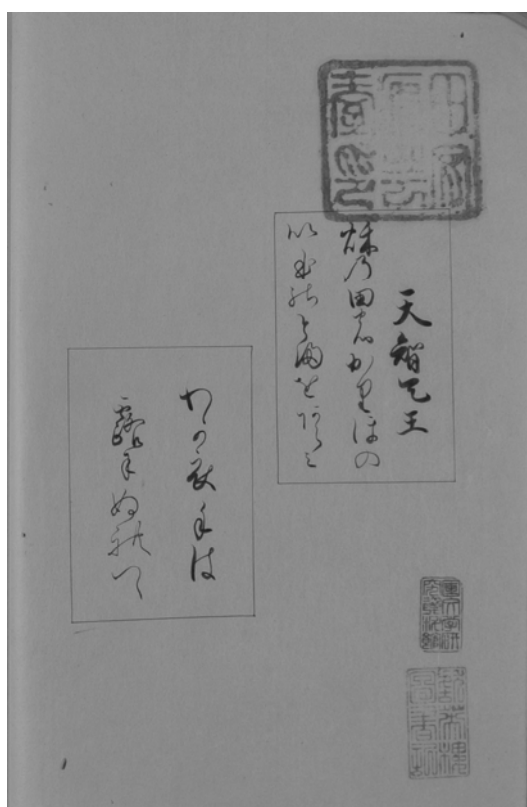 天智天王
秋乃田のかりほの
いほのとまをあらミ
わか衣手は
露にぬれつゝ